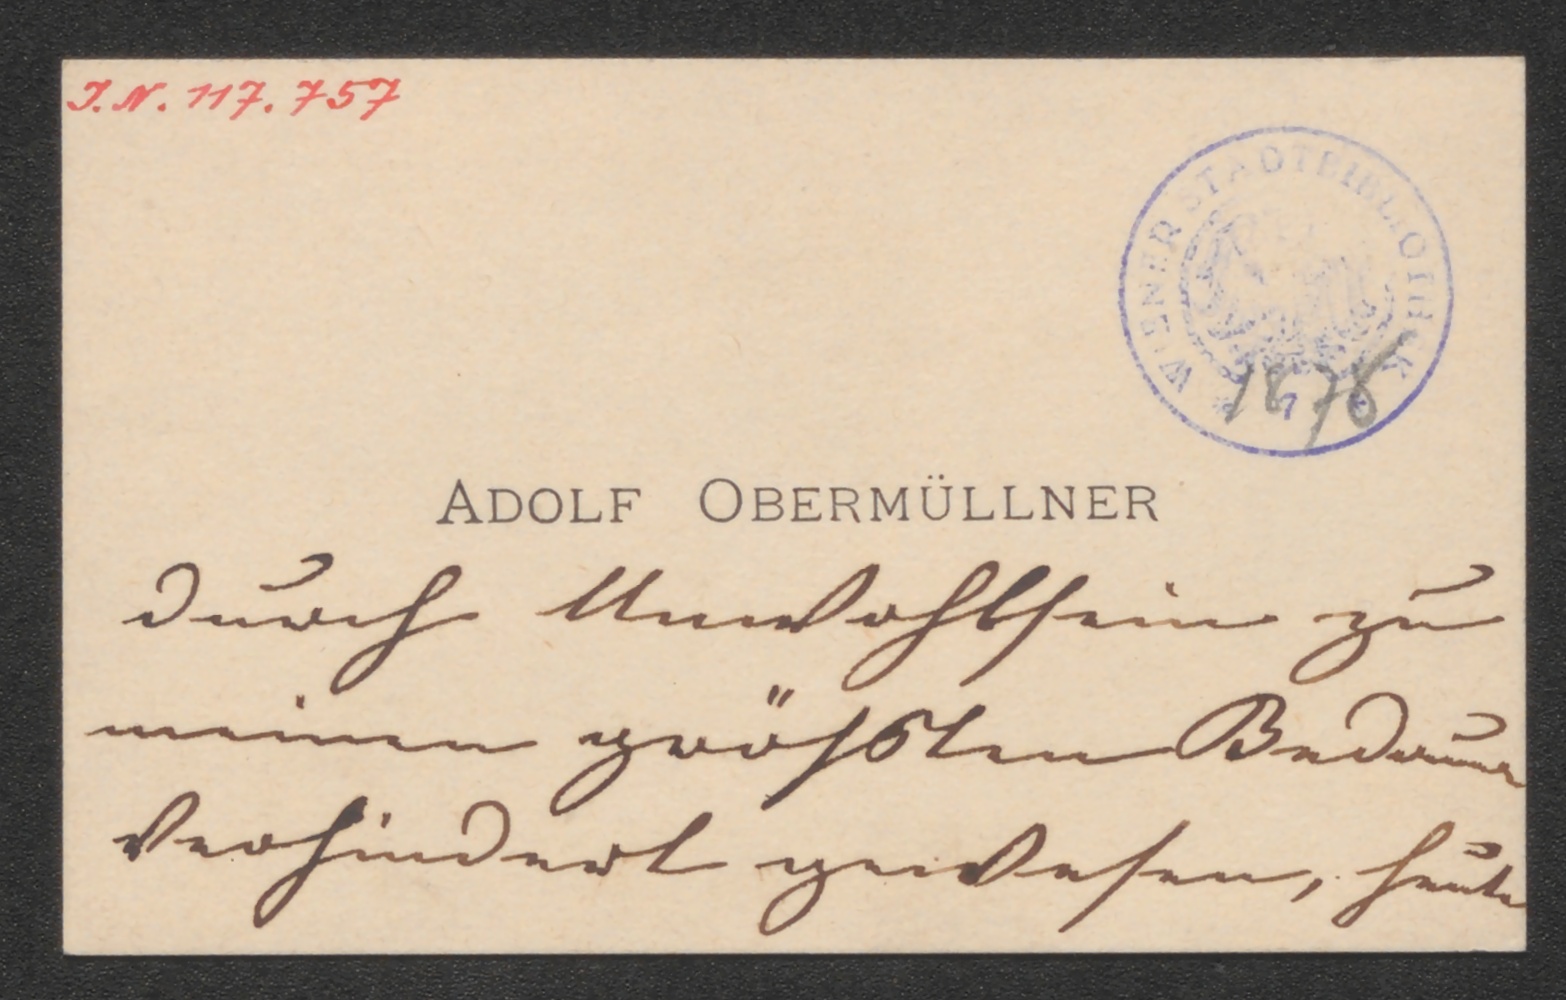 I. N. 117.757
WIENER STADTBIBLIOTHEK
1878
ADOLF OBERMÜLLNER
durch Unwohlsein zu
meinen größten Bedauern
verhindert gewesen, heute